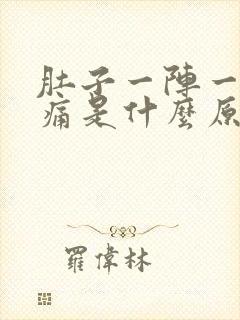 肚子一陣一
痛是什麼原
羅偉林